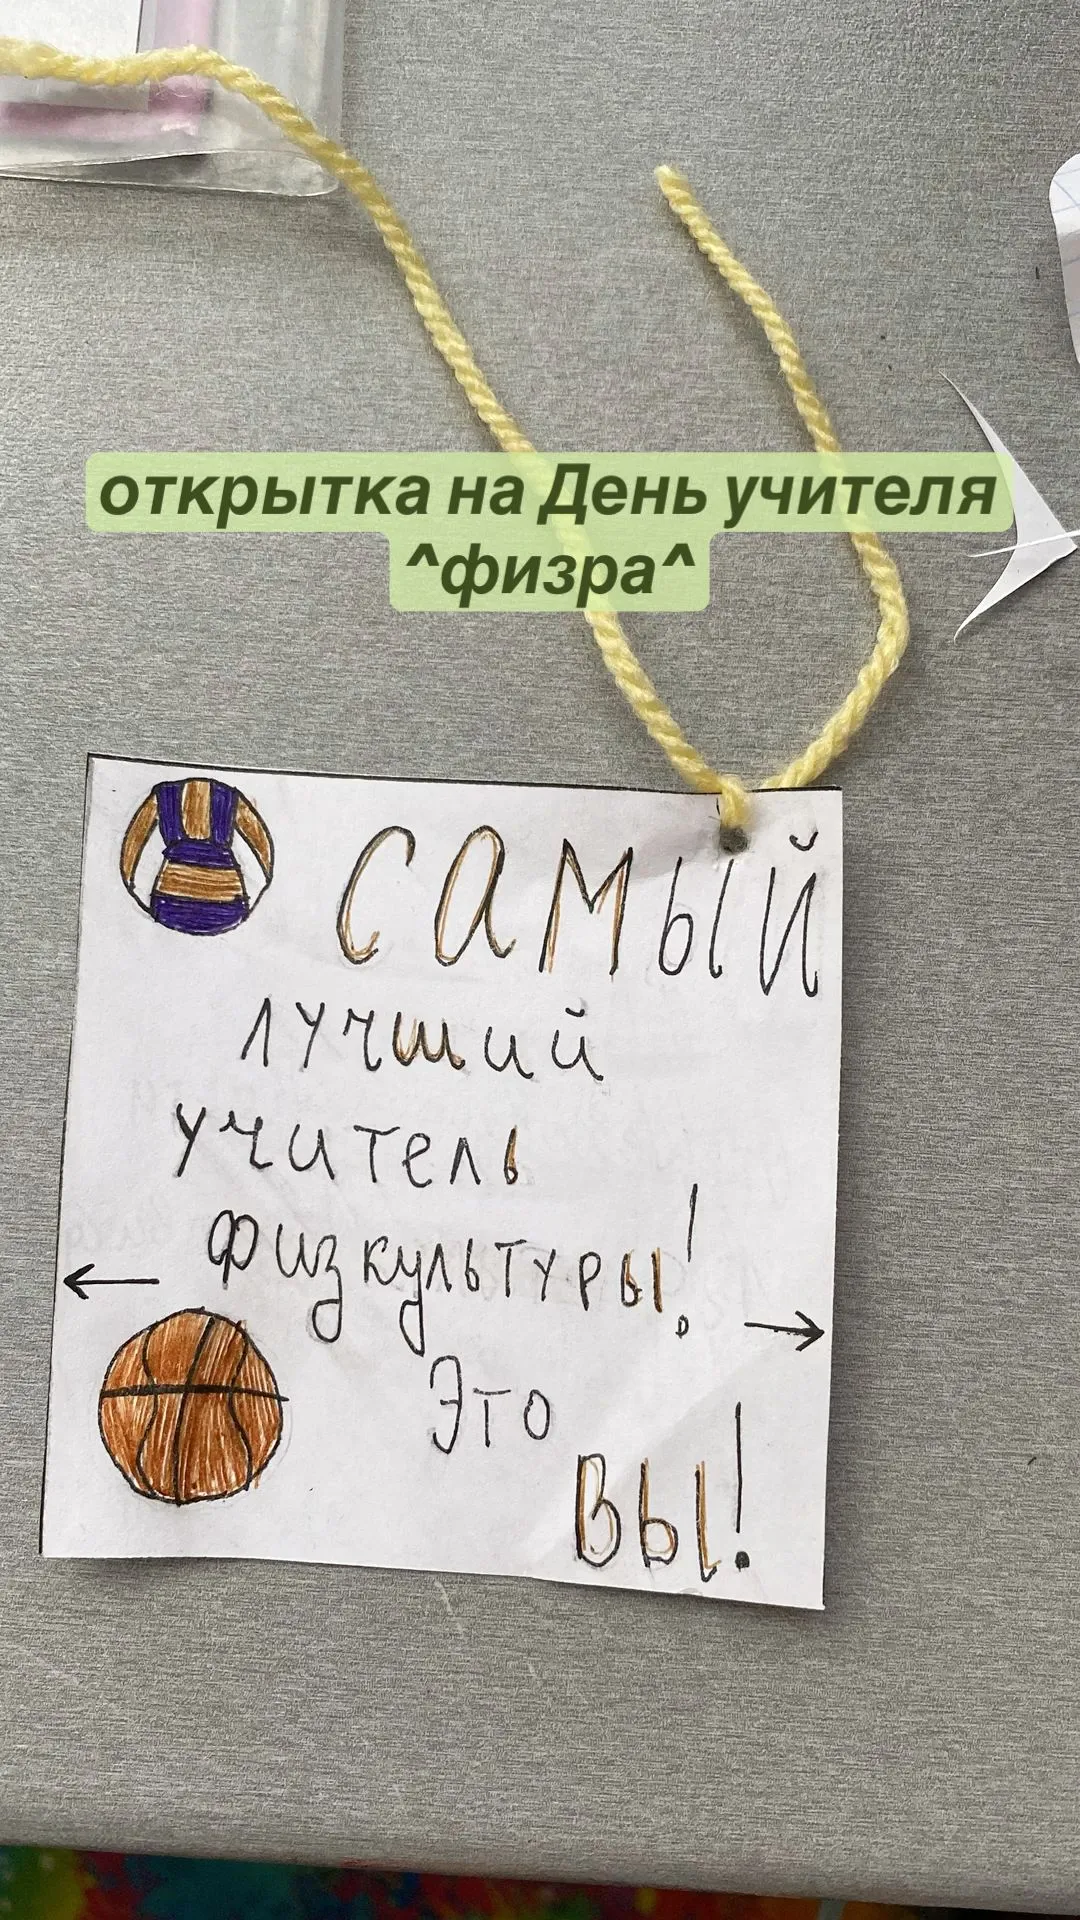 открытка на День учителя
^физра^
самый
лучший
учитель
физкультуры!
Это
Вы!